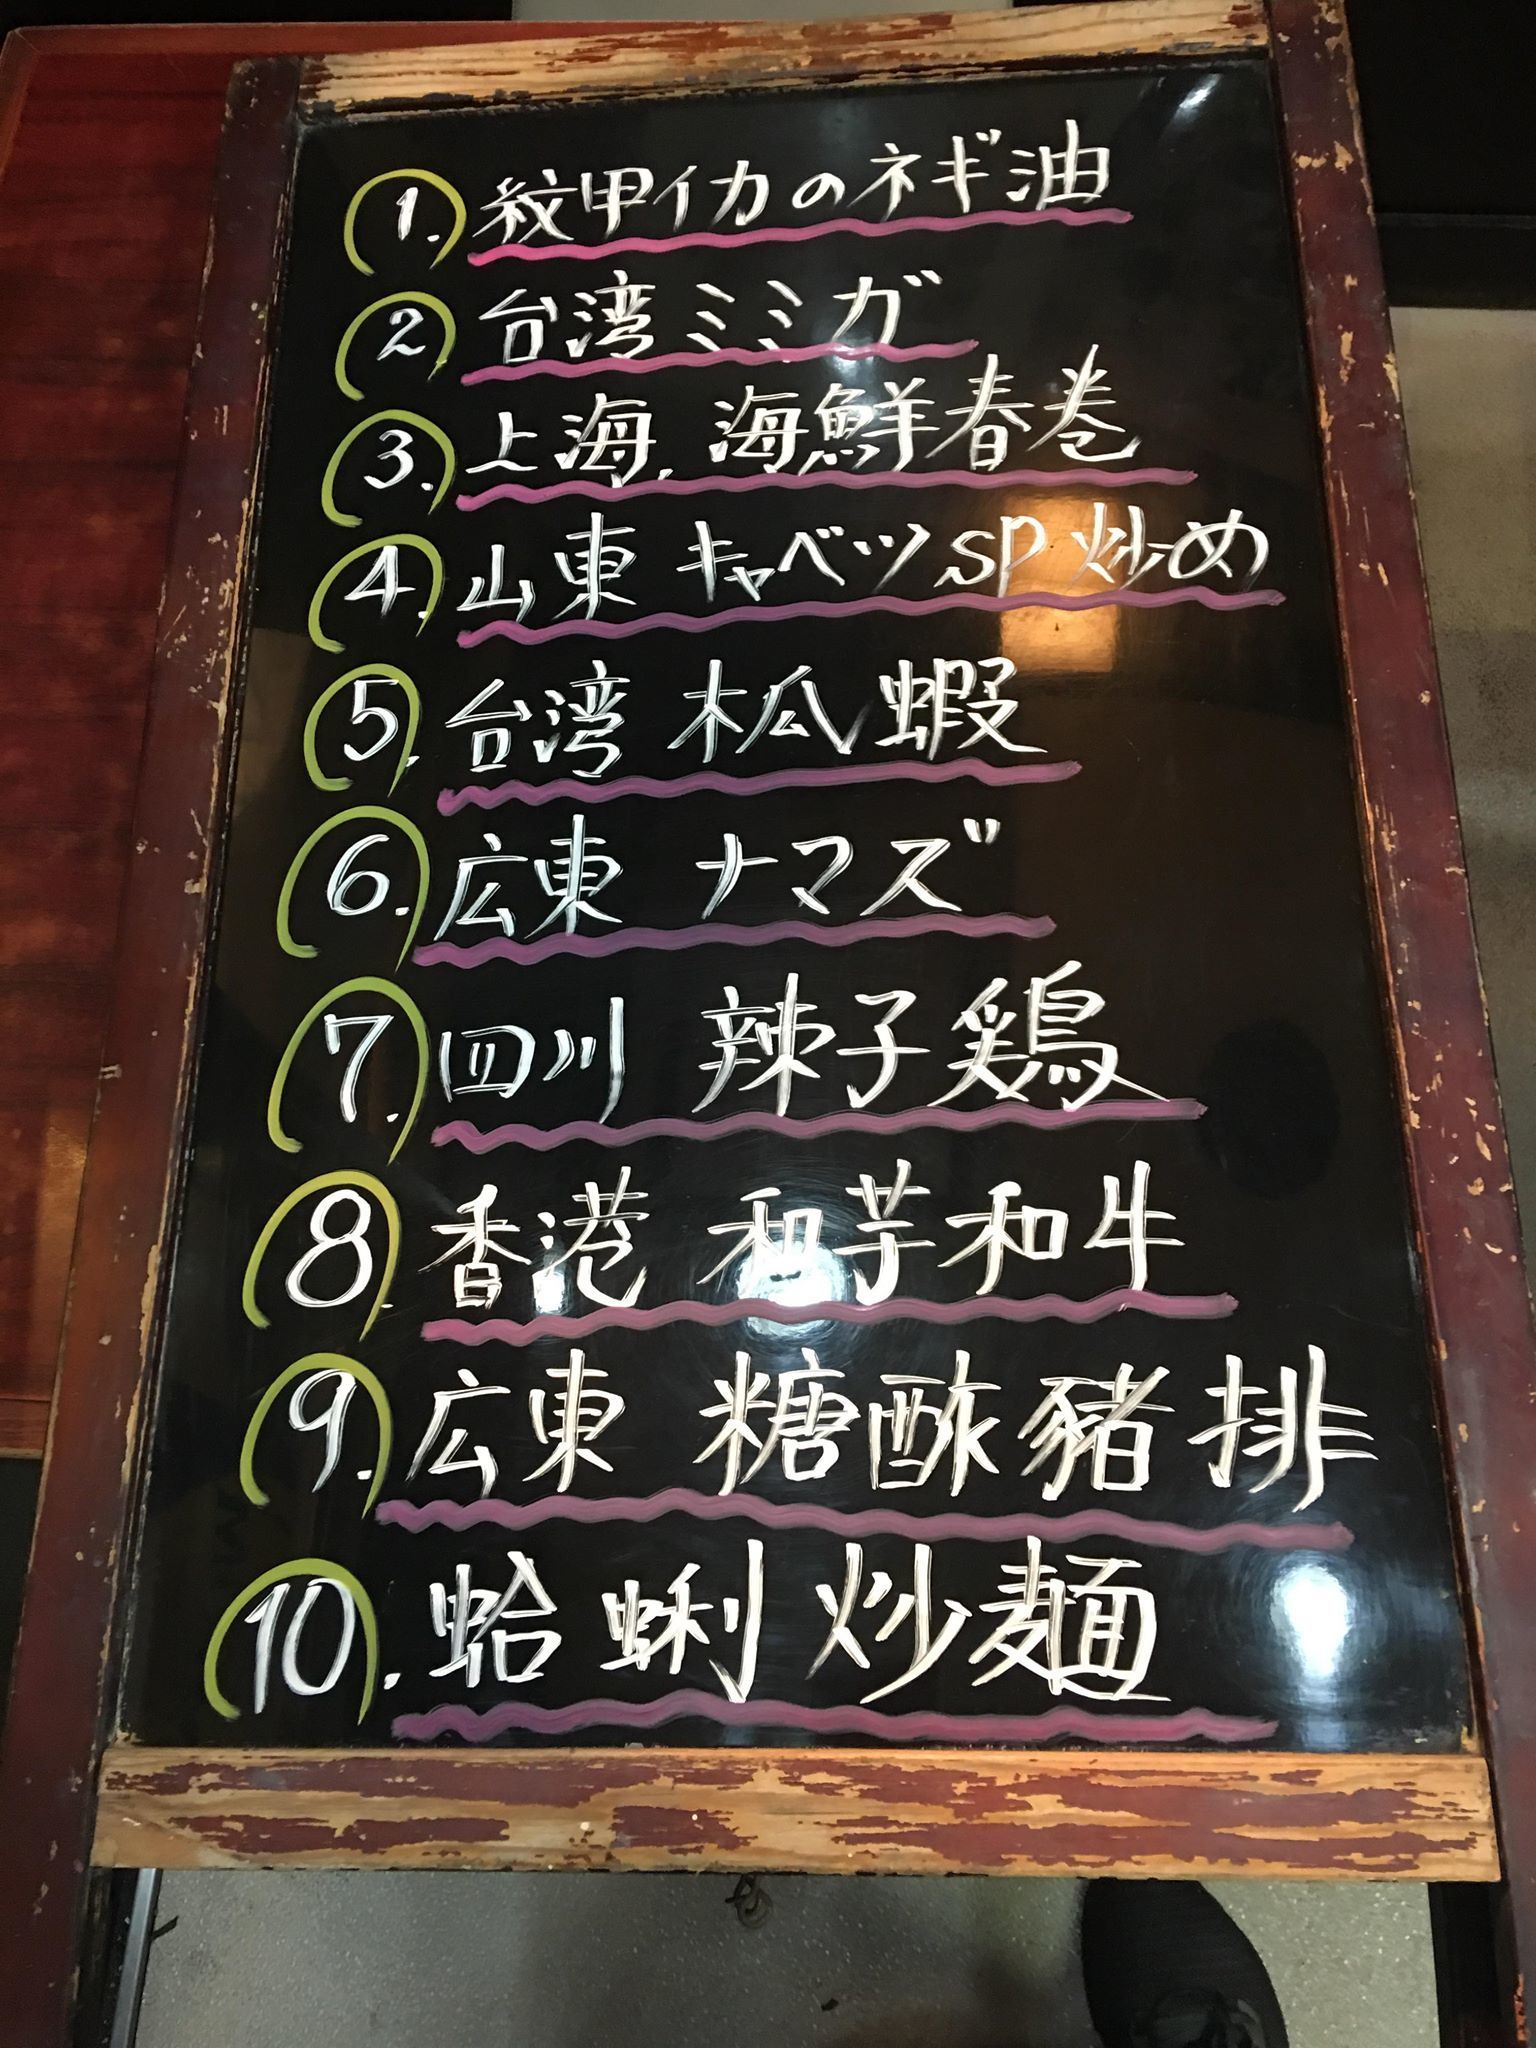 1. 紋甲イカのネギ油
2 台湾ミミガ
3. 上海.海鮮春巻
4. 山東 キャベツSP炒め
5. 台湾 木瓜蝦
6. 広東 ナマズ
7. 四川 辣子鶏
8. 香港 和芋和牛
9. 広東 糖酢豬排
10. 蛤蜊炒麺